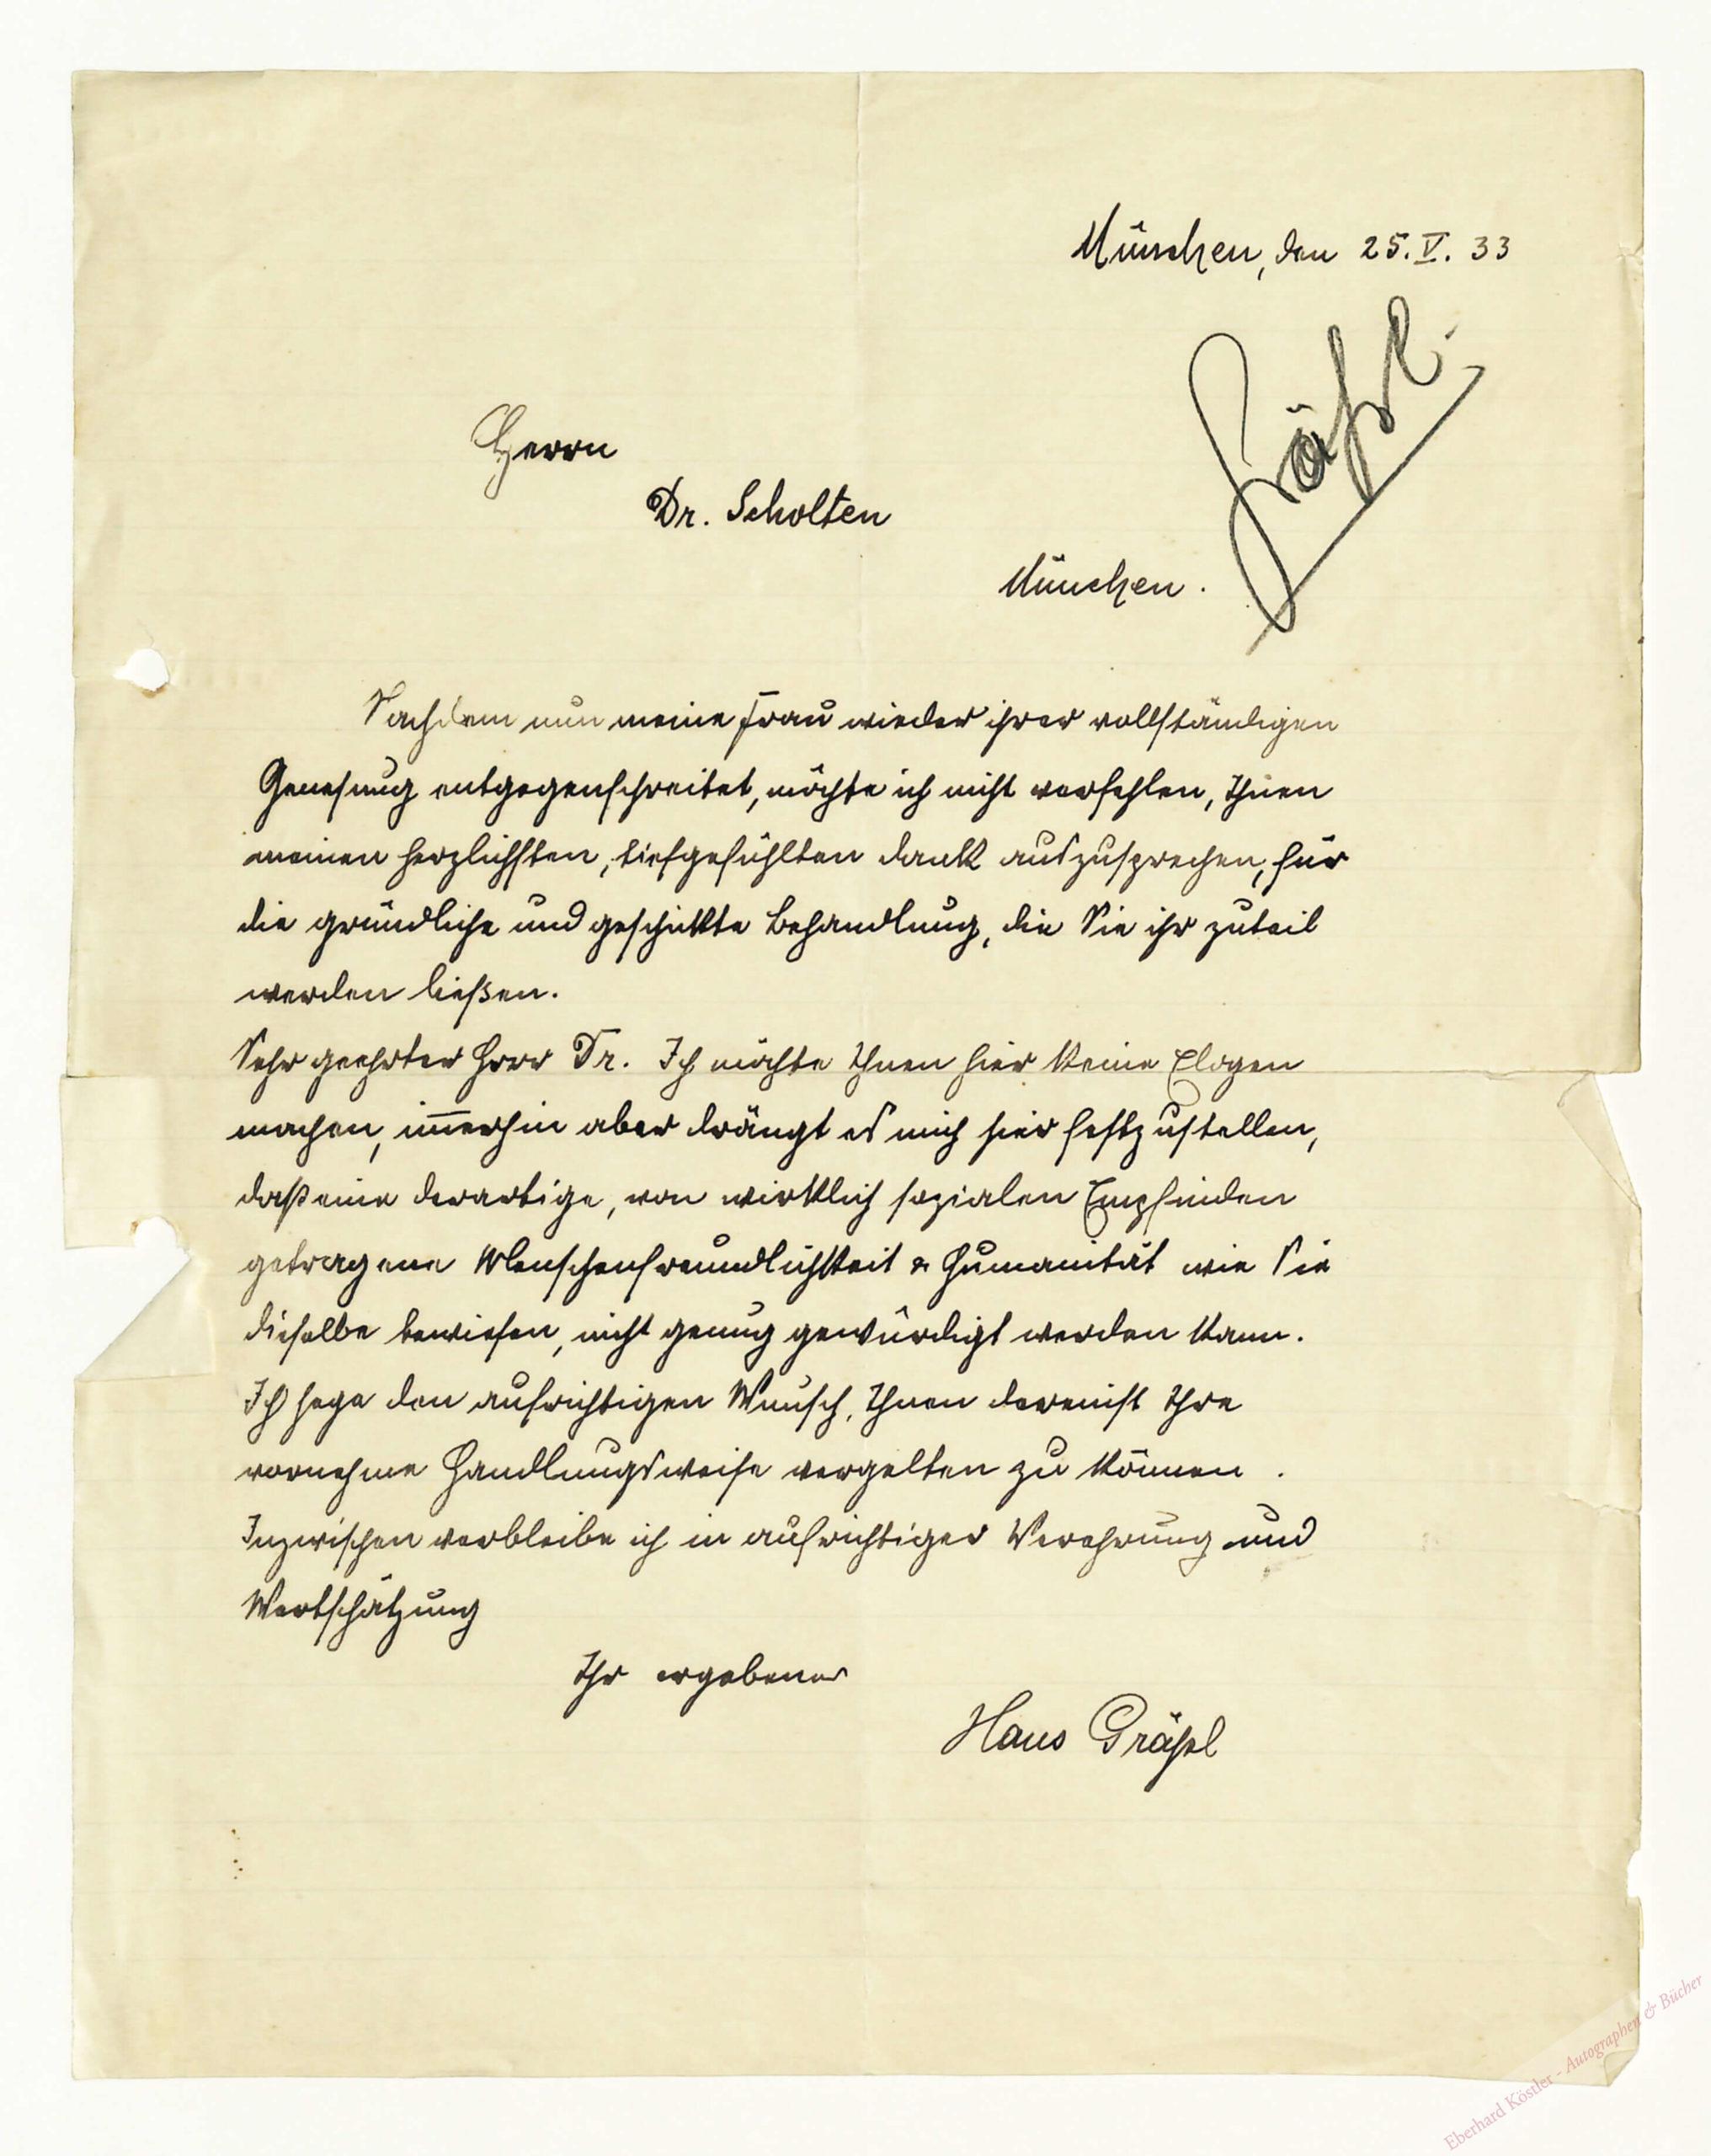 München, den 25. V. 33
Gräßl.
Herrn
Dr. Scholten
München.
Nachdem nun meine Frau wieder ihrer vollständigen
Genesung entgegenschreitet, möchte ich nicht verfehlen, Ihnen
meinen herzlichsten, tiefgefühlten Dank auszusprechen, für
die gründliche und geschickte Behandlung, die Sie ihr zuteil
werden ließen.
Sehr geehrter Herr Dr. Ich möchte Ihnen hier keine Elogen
machen, im̅erhin aber drängt es mich hier festzustellen,
daß eine derartige, von wirklich sozialen Empfinden
getragene Menschenfreundlichkeit & Humanität wie Sie
dieselbe bewiesen, nicht genug gewürdigt werden kann.
Ich hege den aufrichtigen Wunsch, Ihnen dereinst Ihre
vornehme Handlungsweise vergelten zu können.
Inzwischen verbleibe ich in aufrichtiger Verehrung und
Wertschätzung
Ihr ergebener
Hans Gräßl
Eberhard Köstler - Autographen & Bücher